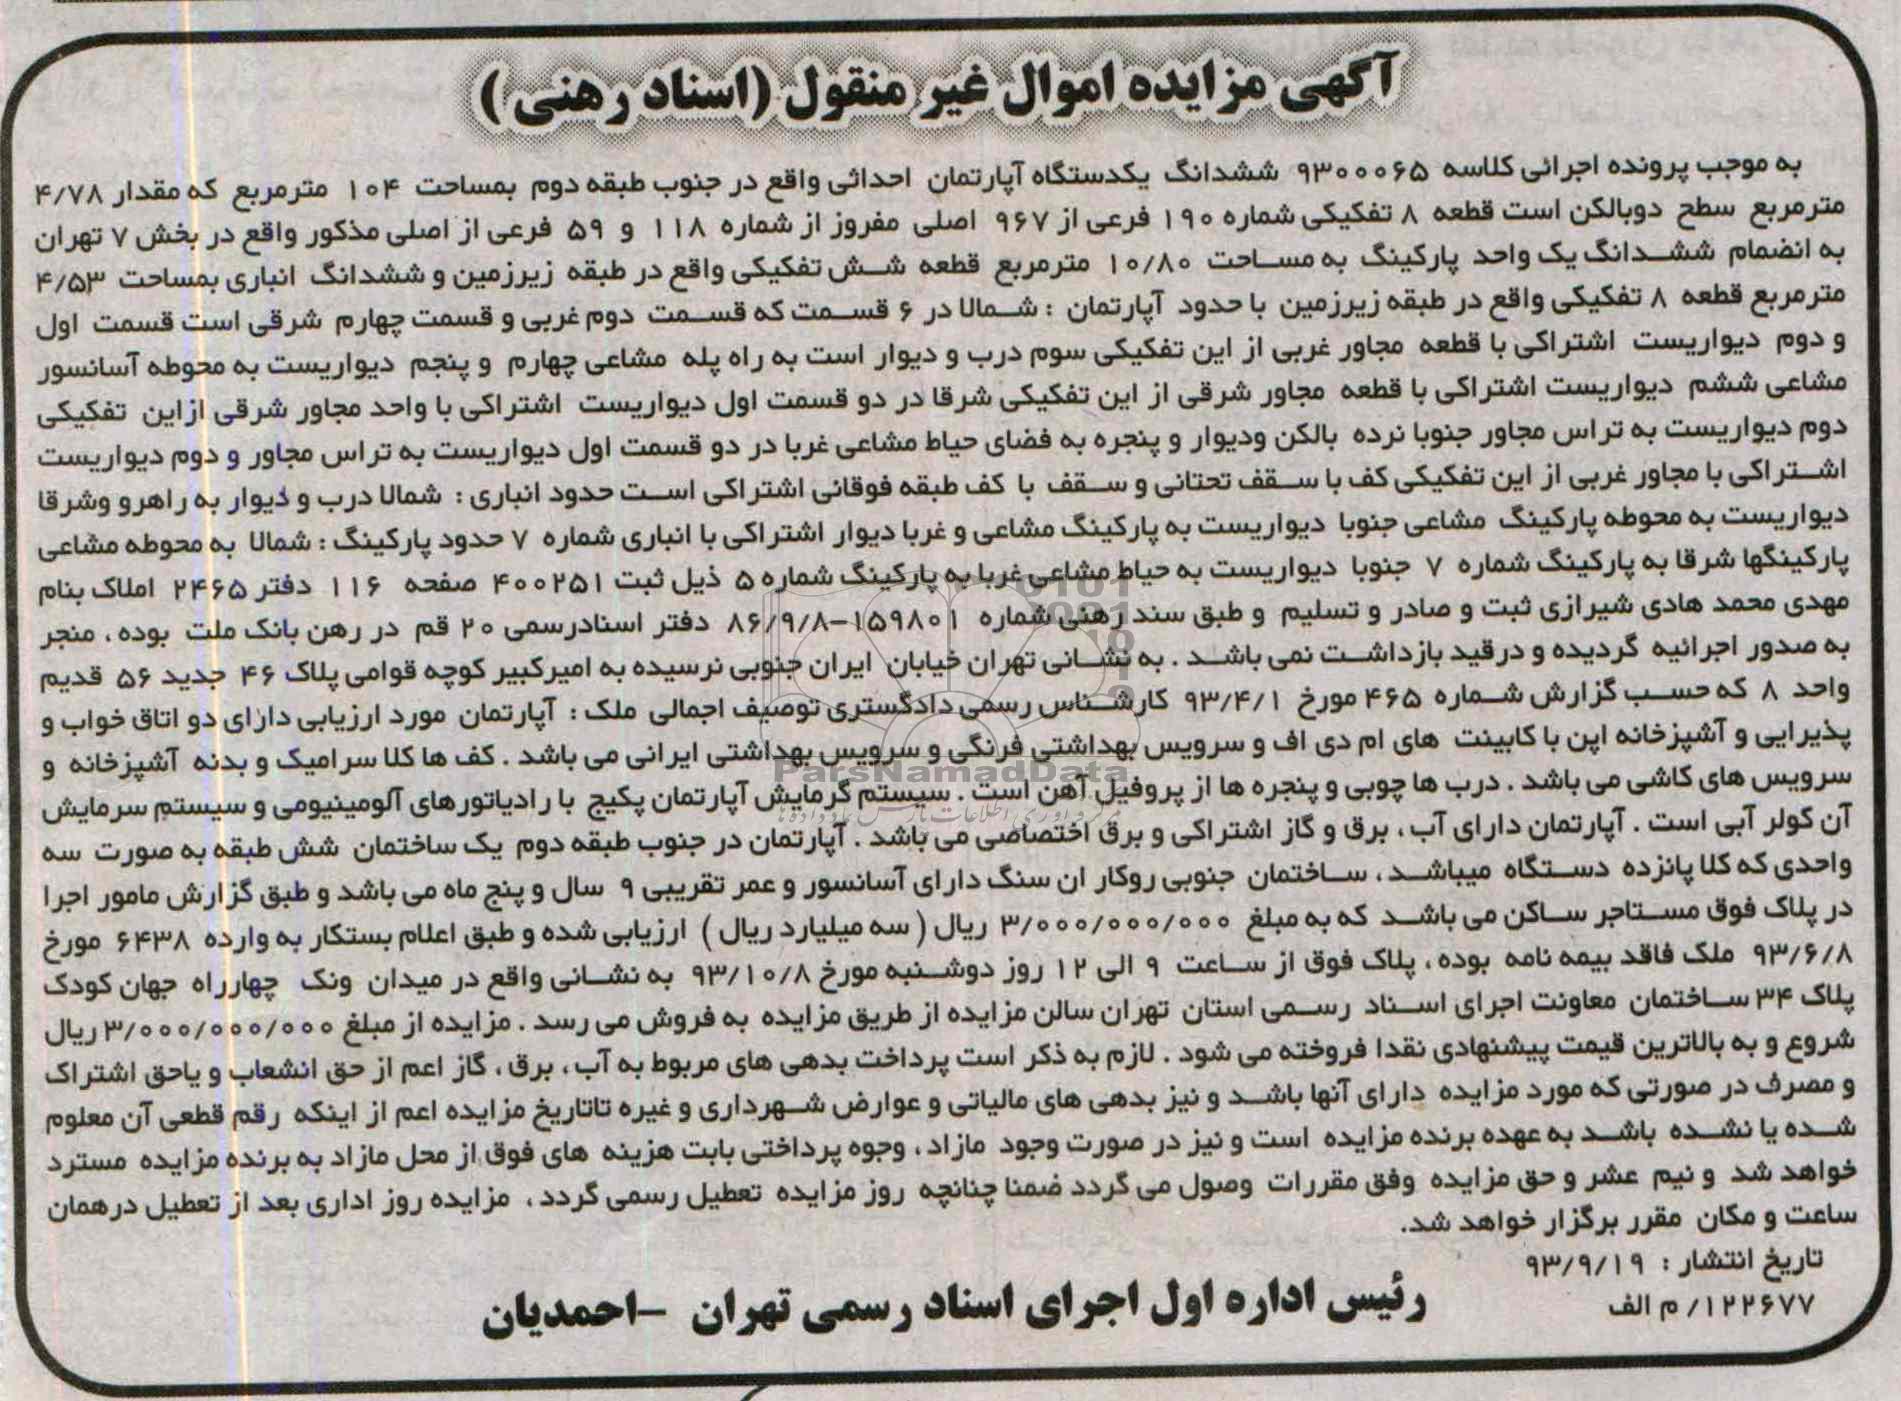 آگهی مزایده اموال غیر منقول (اسناد رهنی)
به موجب پرونده اجرائی کلاسه ۹۳۰۰۰۶۵ ششدانگ یکدستگاه آپارتمان احداثی واقع در جنوب طبقه دوم بمساحت ۱۰۴ مترمربع که مقدار ۴/۷۸
مترمربع سطح دوبالکن است قطعه ۸ تفکیکی شماره ۱۹۰ فرعی از ۹۶۷ اصلی مفروز از شماره ۱۱۸ و ۵۹ فرعی از اصلی مذکور واقع در بخش ۷ تهران
به انضمام ششدانگ یک واحد پارکینگ به مساحت ۱۰/۸۰ مترمربع قطعه شش تفکیکی واقع در طبقه زیرزمین و ششدانگ انباری بمساحت ۴/۵۳
مترمربع قطعه ۸ تفکیکی واقع در طبقه زیرزمین با حدود آپارتمان : شمالا در ۶ قسمت که قسمت دوم غربی و قسمت چهارم شرقی است قسمت اول
و دوم دیواریست اشتراکی با قطعه مجاور غربی از این تفکیکی سوم درب و دیوار است به راه پله مشاعی چهارم و پنجم دیواریست به محوطه آسانسور
مشاعی ششم دیواریست اشتراکی با قطعه مجاور شرقی از این تفکیکی شرقا در دو قسمت اول دیواریست اشتراکی با واحد مجاور شرقی ازاین تفکیکی
دوم دیواریست به تراس مجاور جنوبا نرده بالکن ودیوار و پنجره به فضای حیاط مشاعی غربا در دو قسمت اول دیواریست به تراس مجاور و دوم دیواریست
اشتراکی با مجاور غربی از این تفکیکی کف با سقف تحتانی و سقف با کف طبقه فوقانی اشتراکی است حدود انباری : شمالا درب و دیوار به راهرو وشرقا
دیواریست به محوطه پارکینگ مشاعی جنوبا دیواریست به پارکینگ مشاعی و غربا دیوار اشتراکی با انباری شماره ۷ حدود پارکینگ : شمالا به محوطه مشاعی
پارکینگها شرقا به پارکینگ شماره ۷ جنوبا دیواریست به حیاط مشاعی غربا به پارکینگ شماره ۵ ذیل ثبت ۴۰۰۲۵۱ صفحه ۱۱۶ دفتر ۲۴۶۵ املاک بنام
مهدی محمد هادی شیرازی ثبت و صادر و تسلیم و طبق سند رهنی شماره ۱۵۹۸۰۱-۸۶/۹/۸ دفتر اسنادرسمی ۲۰ قم در رهن بانک ملت بوده، منجر
به صدور اجرائیه گردیده و درقید بازداشت نمی باشد . به نشانی تهران خیابان ایران جنوبی نرسیده به امیرکبیر کوچه قوامی پلاک ۴۶ جدید ۵۶ قدیم
واحد ۸ که حسب گزارش شماره ۴۶۵ مورخ ۹۳/۴/۱ کارشناس رسمی دادگستری توصیف اجمالی ملک : آپارتمان مورد ارزیابی دارای دو اتاق خواب و
پذیرایی و آشپزخانه اپن با کابینت های ام دی اف و سرویس بهداشتی فرنگی و سرویس بهداشتی ایرانی می باشد . کف ها کلا سرامیک و بدنه آشپزخانه و
سرویس های کاشی می باشد . درب ها چوبی و پنجره ها از پروفیل آهن است . سیستم گرمایش آپارتمان پکیج با رادیاتورهای آلومینیومی و سیستم سرمایش
آن کولر آبی است . آپارتمان دارای آب، برق و گاز اشتراکی و برق اختصاصی می باشد . آپارتمان در جنوب طبقه دوم یک ساختمان شش طبقه به صورت سه
واحدی که کلا پانزده دستگاه میباشد، ساختمان جنوبی روکار ان سنگ دارای آسانسور و عمر تقریبی ۹ سال و پنج ماه می باشد و طبق گزارش مامور اجرا
در پلاک فوق مستاجر ساکن می باشد که به مبلغ ۳/۰۰۰/۰۰۰/۰۰۰ ریال (سه میلیارد ریال) ارزیابی شده و طبق اعلام بستکار به وارده ۶۴۳۸ مورخ
۹۳/۶/۸ ملک فاقد بیمه نامه بوده، پلاک فوق از ساعت ۹ الی ۱۲ روز دوشنبه مورخ ۹۳/۱۰/۸ به نشانی واقع در میدان ونک چهارراه جهان کودک
پلاک ۳۴ ساختمان معاونت اجرای اسناد رسمی استان تهران سالن مزایده از طریق مزایده به فروش می رسد . مزایده از مبلغ ۳/۰۰۰/۰۰۰/۰۰۰ ریال
شروع و به بالاترین قیمت پیشنهادی نقدا فروخته می شود . لازم به ذکر است پرداخت بدهی های مربوط به آب، برق، گاز اعم از حق انشعاب و یاحق اشتراک
و مصرف در صورتی که مورد مزایده دارای آنها باشد و نیز بدهی های مالیاتی و عوارض شهرداری و غیره تاتاریخ مزایده اعم از اینکه رقم قطعی آن معلوم
شده یا نشده باشد به عهده برنده مزایده است و نیز در صورت وجود مازاد، وجوه پرداختی بابت هزینه های فوق از محل مازاد به برنده مزایده مسترد
خواهد شد و نیم عشر و حق مزایده وفق مقررات وصول می گردد ضمنا چنانچه روز مزایده تعطیل رسمی گردد، مزایده روز اداری بعد از تعطیل درهمان
ساعت و مکان مقرر برگزار خواهد شد.
تاریخ انتشار : ۹۳/۹/۱۹
۱۲۲۶۷۷/ م الف
رئیس اداره اول اجرای اسناد رسمی تهران -احمدیان
ParsNamadData